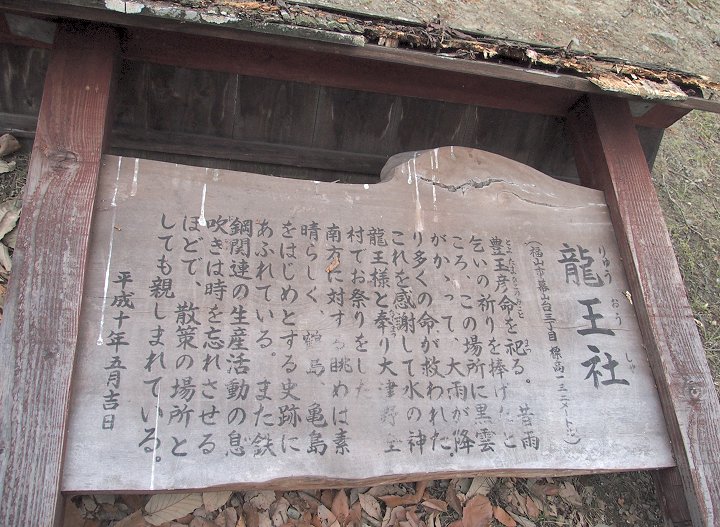 龍王社
りゅうおうしゃ
(福山市幕山台三丁目 標高一三二メートル)
豊玉彦命を祀る。昔雨
とよたまひこのみこと
乞いの祈りを捧げたと
ころ、この場所に黒雲
がかゝって、大雨が降
り多くの命が救われた。
これを感謝して水の神
龍王様と奉り大津野全
村でお祭りをした
南方に対する眺めは素
晴らしく、鶴島、亀島
をはじめとする史跡に
あふれている。また鉄
鋼関連の生産活動の息
吹きは、時を忘れさせる
ほどで、散策の場所と
しても親しまれている。
平成十年五月吉日